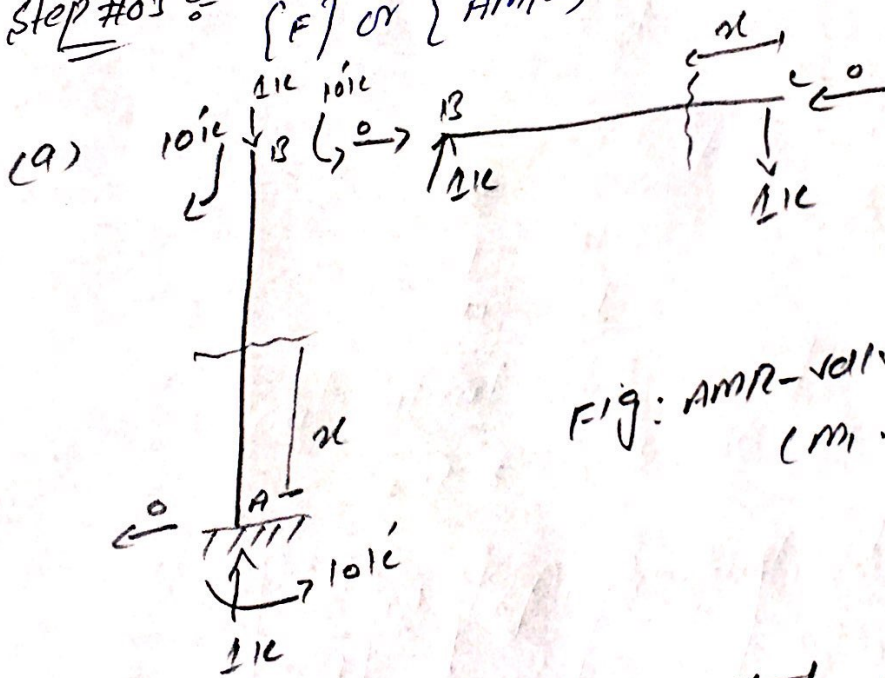 Step #03 :- [F] or { AMR
x
(a) 10'k 1k B 10'k 0 B 1k C 0 1k
x
Fig: AMR-valu
(m,
0 A
10k'
1k